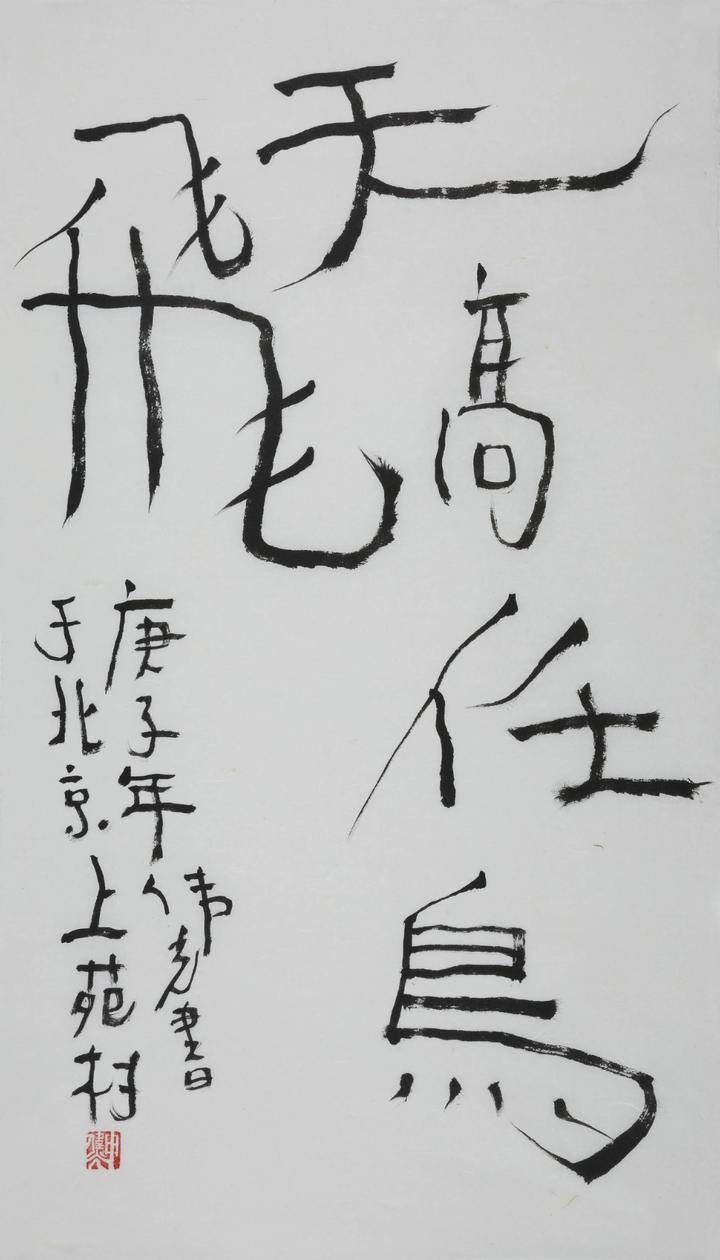 天高任鳥
飛
庚子年伟光書
于北京上苑村